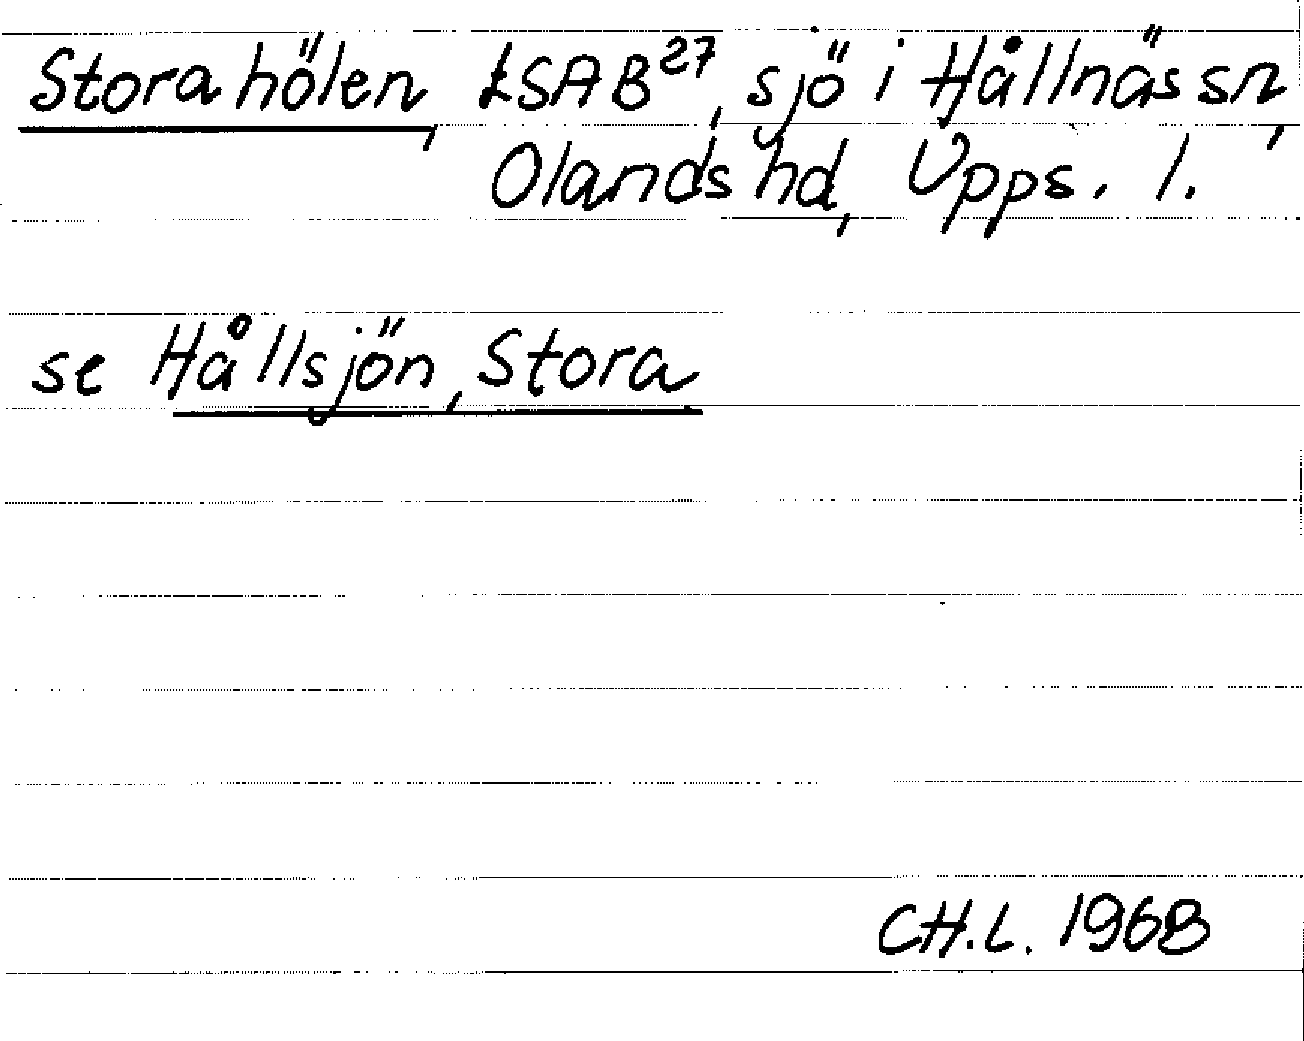 Stora hölen, ŁSAB²⁷, sjö i Hållnäs sn,
Olands hd, Upps. l.
se Hållsjön, Stora
CH.L. 1968